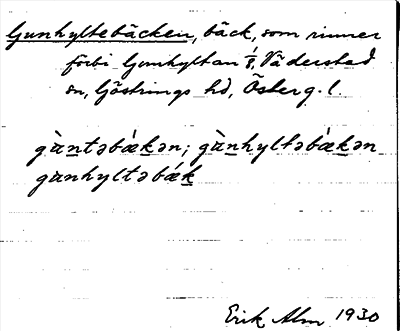 Gunhyltebäcken, bäck, som rinner
förbi Gunhyltan i Väderstad
sn, Göstrings hd, Österg. l.
gùntəbǽkən; gùnhyltəbǽkən
gunhyltəbǽk
Erik Alm 1930